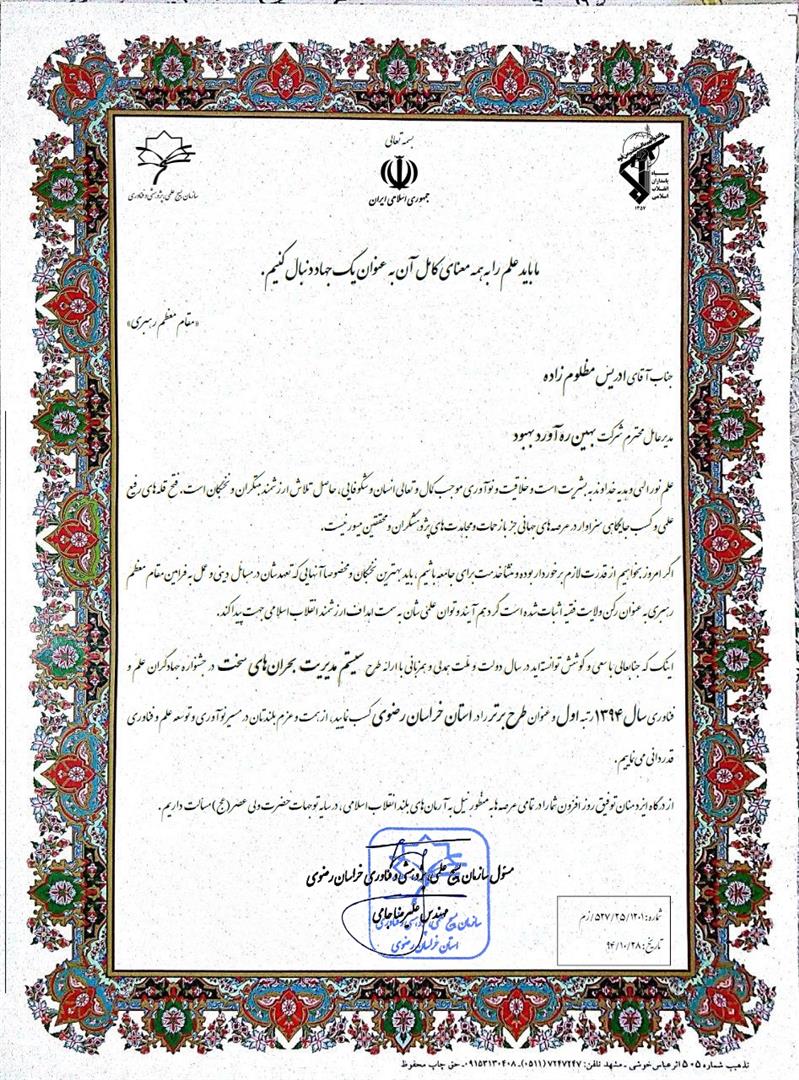 بسمه تعالی
جمهوری اسلامی ایران
سازمان بسیج علمی، پژوهشی و فناوری
سپاه
پاسداران
انقلاب
اسلامی
۱۳۵۷
ما باید علم را به همه معنای کامل آن به عنوان یک جهاد دنبال کنیم.
«مقام معظم رهبری»
جناب آقای ادریس مظلوم زاده
مدیرعامل محترم شرکت بهین ره آورد بهبود
علم نور الهی و هدیه خداوند به بشریت است و خلاقیت و نوآوری موجب کمال و تعالی انسان و شکوفایی، حاصل تلاش ارزشمند پژوهشگران و نخبگان است. فتح قله های رفیع
علمی و کسب جایگاهی سزاوار در عرصه های جهانی جز با زحمات و مجاهدت های پژوهشگران و محققین میسور نیست.
اگر امروز بخواهیم از قدرت لازم برخوردار بوده و منشأ خدمت برای جامعه باشیم، باید بهترین نخبگان و مخصوصا آنهایی که تعهدشان در مسائل دینی و عمل به فرامین مقام معظم
رهبری به عنوان رکن ولایت فقیه اثبات شده است گرد هم آیند و توان علمی شان به سمت اهداف ارزشمند انقلاب اسلامی جهت پیدا کند.
اینک که جنابعالی با سعی و کوشش توانسته اید در سال دولت و ملت همدلی و همزبانی با ارائه طرح سیستم مدیریت بحران های سخت در جشنواره جهادگران علم و
فناوری سال ۱۳۹۴ رتبه اول و عنوان طرح برتر را در استان خراسان رضوی کسب نمایید، از همت و عزم بلندتان در مسیر نوآوری و توسعه علم و فناوری
قدردانی می نماییم.
از درگاه ایزد منان توفیق روز افزون شما را در تمامی عرصه ها به منظور نیل به آرمان های بلند انقلاب اسلامی، در سایه توجهات حضرت ولی عصر (عج) مسألت داریم.
مسئول سازمان بسیج علمی، پژوهشی و فناوری خراسان رضوی
مهندس علیرضا جامی
سازمان بسیج علمی، پژوهشی و فناوری
استان خراسان رضوی
شماره: ۵۲۷/۲۵/۱۲۰۱/زم
تاریخ: ۹۴/۱۰/۲۸
تذهیب شماره ۵۰۵ اثر عباس خوشی ـ مشهد تلفن: ۷۲۴۷۲۴۷ (۰۵۱۱)ـ ۰۹۱۵۳۱۳۰۴۰۸ـ حق چاپ محفوظ